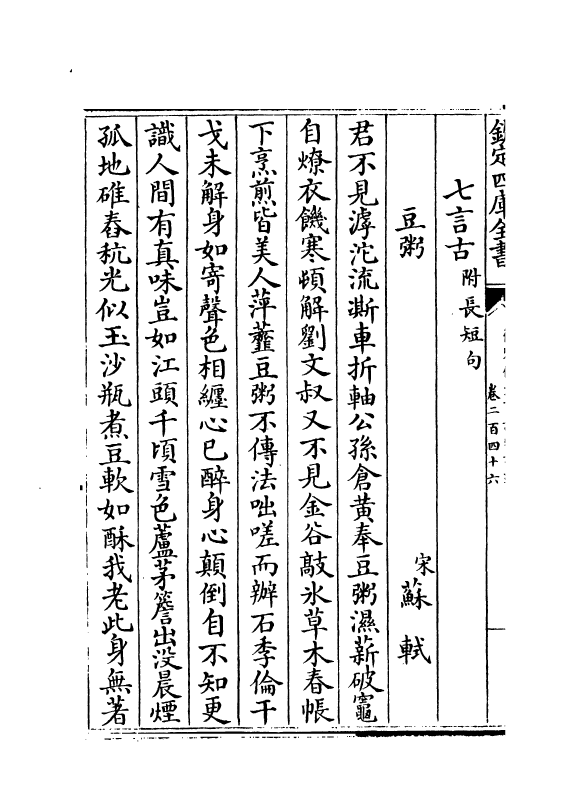 欽定四庫全書
卷二百四十六
七言古附長短句
豆粥
宋蘇軾
君不見滹沱流澌車折軸公孫倉黄奉豆粥濕薪破竈
自燎衣饑寒頓解劉文叔又不見金谷敲氷草木春帳
下烹煎皆美人萍虀豆粥不傳法咄嗟而辦石季倫干
戈未解身如寄聲色相纒心已醉身心顛倒自不知更
識人間有真味豈如江頭千頃雪色蘆茅簷出没晨煙
孤地碓舂秔光似玉沙瓶煮豆軟如酥我老此身無著